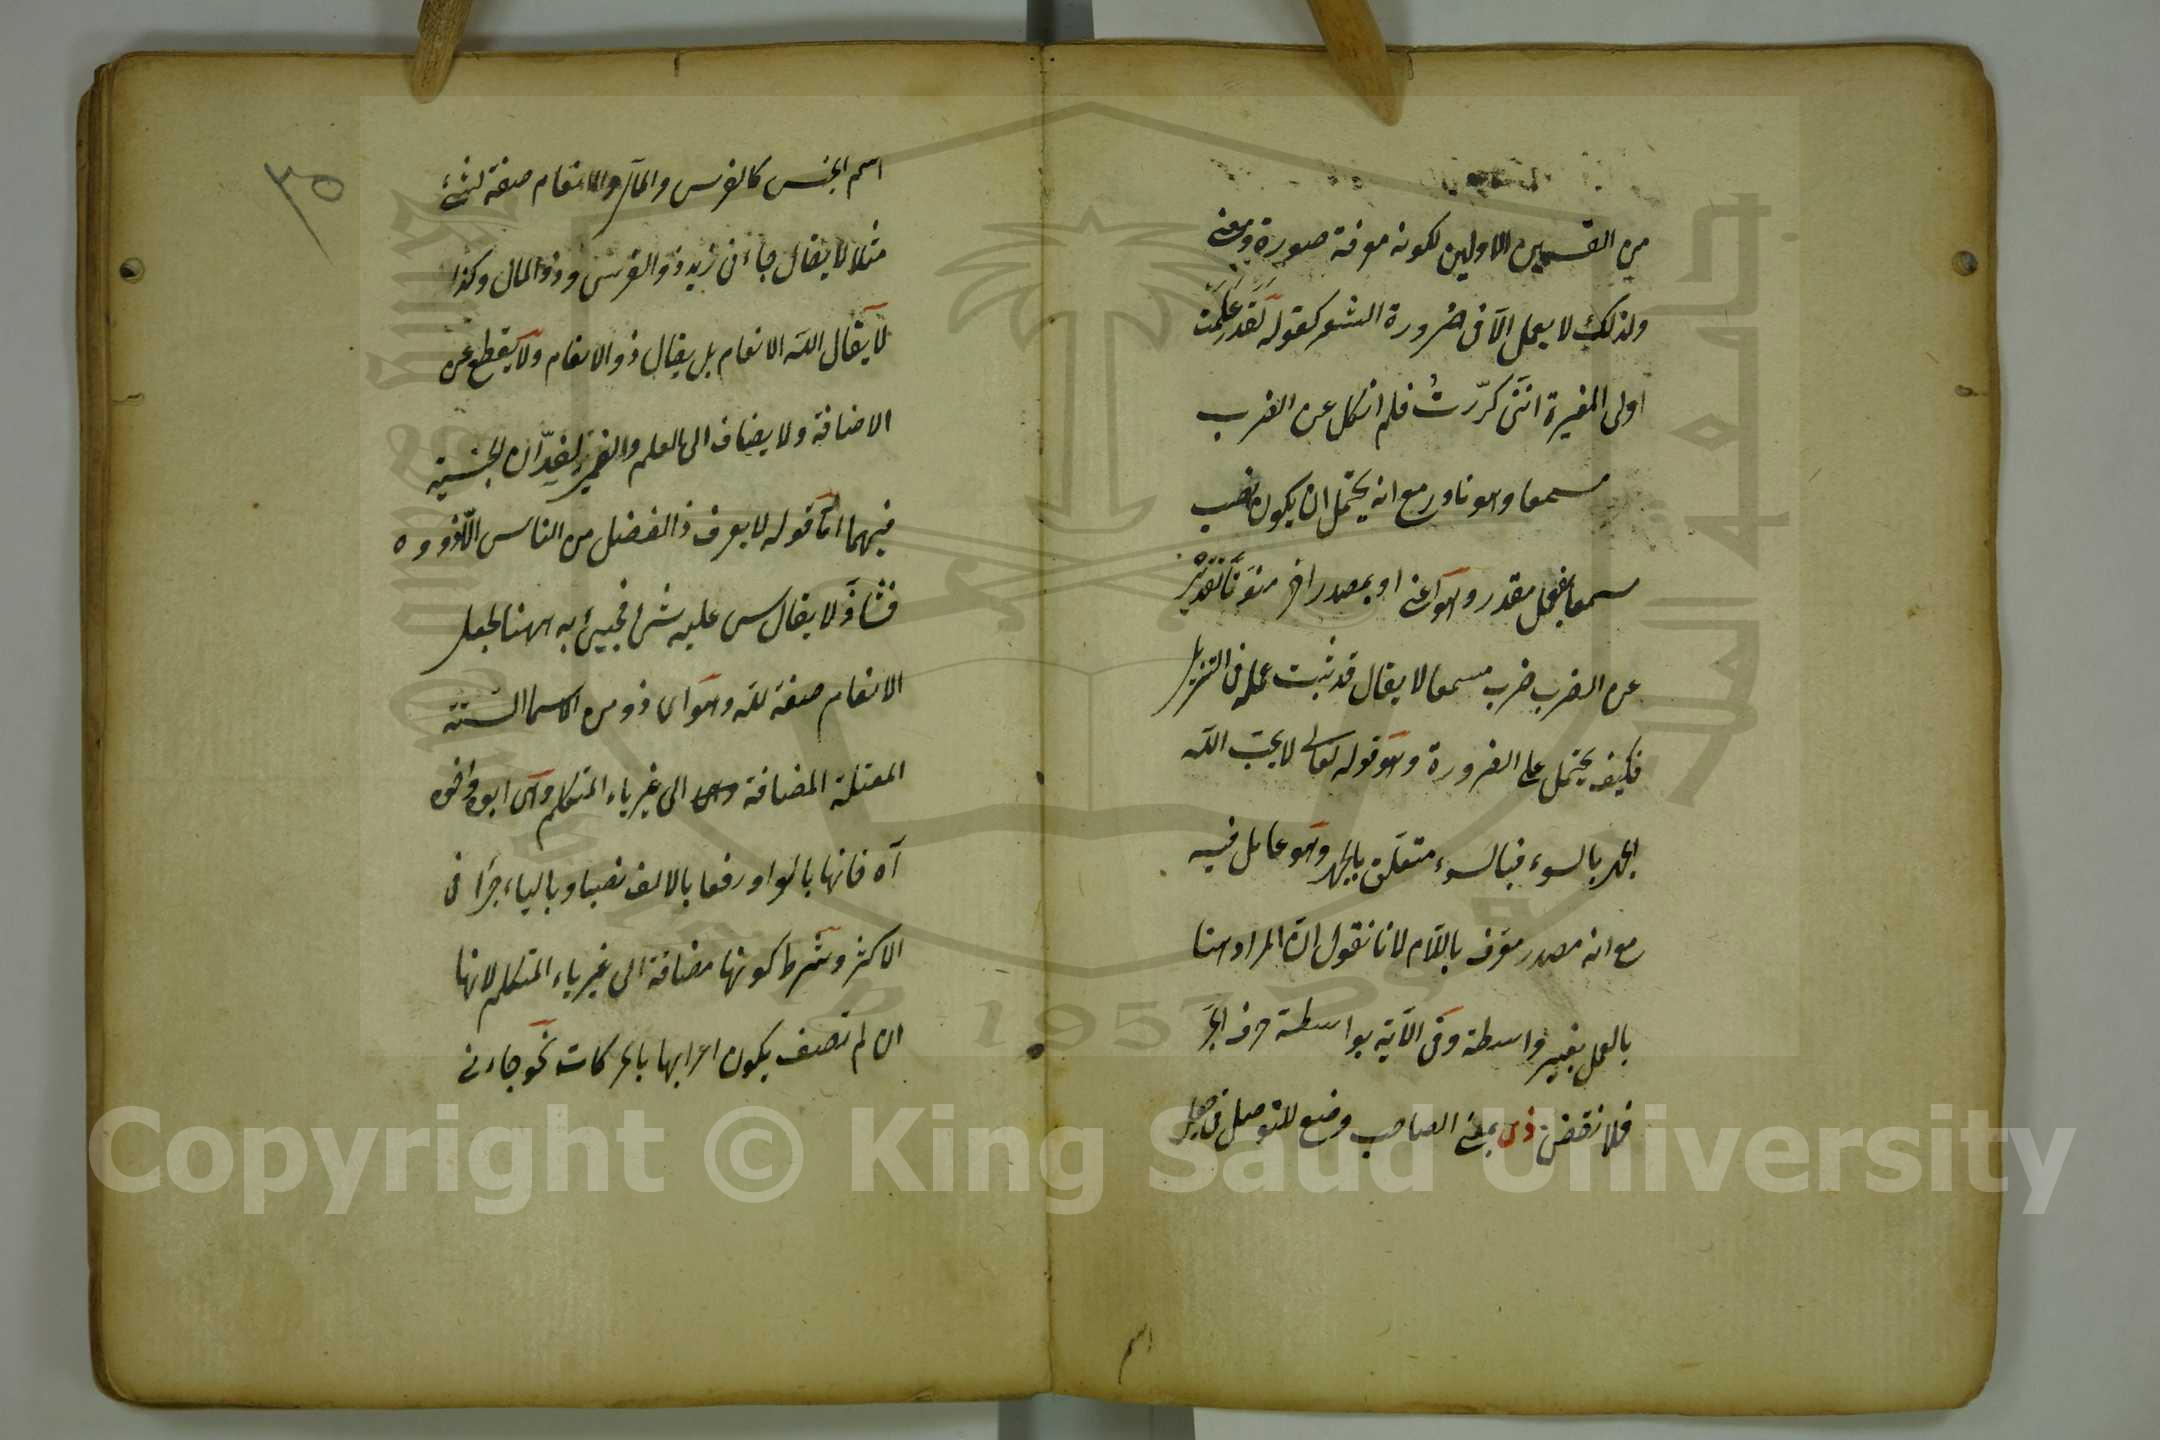 من القسمين الاولين لكونه معرفة صورة ومعنى
ولذلك لا يعمل الّا فى ضرورة الشعر كقوله لَقَدْ عَلِمَتْ
اولى المغيرة انّنى كرّرتُ فلم انكل عن الضرب
مسمعا وهو نادر مع انه يحتمل ان يكون نصب
مسمعا بفعل مقدر وهو اعنى او بمصدر اخر منوّنًا تقديره
عن الضرب ضرب مسمعا لا يقال قد ثبت عمله فى التنزيل
فكيف يحتمل على الضرورة وهو قوله تعالى لا يحبّ الله
الجهر بالسوء فبالسوء متعلق بالجهر وهو عامل فيه
مع انه مصدر معرّف باللّام لانا نقول انّ المراد هنا
بالعمل بغير واسطة وفى الآية بواسطة حرف الجرّ
فلا نقض ذى بمعنى الصاحب وضع للتوصل فى جعل
اسم
٣٥
اسم الجنس كالفرس والمال والانعام صفة لشئ
مثلا لا يقال جاءنى زيد ذو الفرس وذو المال وكذا
لا يقال الله الانعام بل يقال ذو الانعام ولا يقطع عن
الاضافة ولا يضاف الى العلم والضمير لفقدان الجنسية
فيهما امّا قوله لا يعرف ذا الفضل من الناس الّا ذووه
فشاذّ لا يقال عليه شئ فجيئ به ههنا لجعل
الانعام صفة لله وهو اى ذو من الاسماء الستة
المعتلة المضافة الى غير ياء المتكلم وهى ابوه واخوه
آه فانها بالواو رفعا بالالف نصبا وبالياء جرّا فى
الاكثر وشرط كونها مضافة الى غير ياء المتكلم لانها
ان لم تضف يكون اعرابها بالحركات نحو جاءنى
Copyright © King Saud University
1957